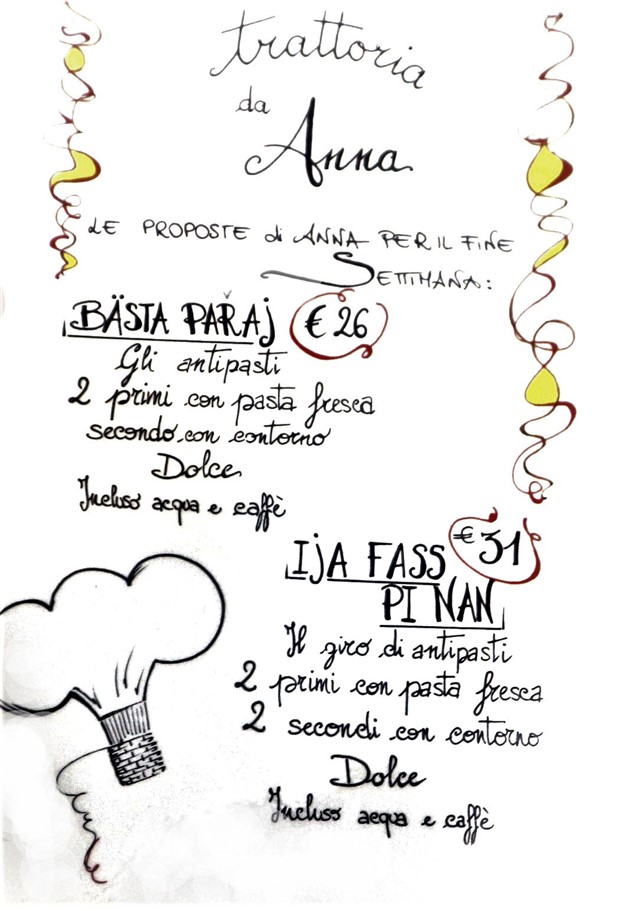 trattoria
da
Anna
LE PROPOSTE di ANNA PER IL FINE
SETTIMANA:
BÄSTA PAŘAJ € 26
Gli antipasti
2 primi con pasta fresca
secondo con contorno
Dolce
Incluso acqua e caffè
IJA FASS € 31
PI NAN
Il giro di antipasti
2 primi con pasta fresca
2 secondi con contorno
Dolce
Incluso acqua e caffè